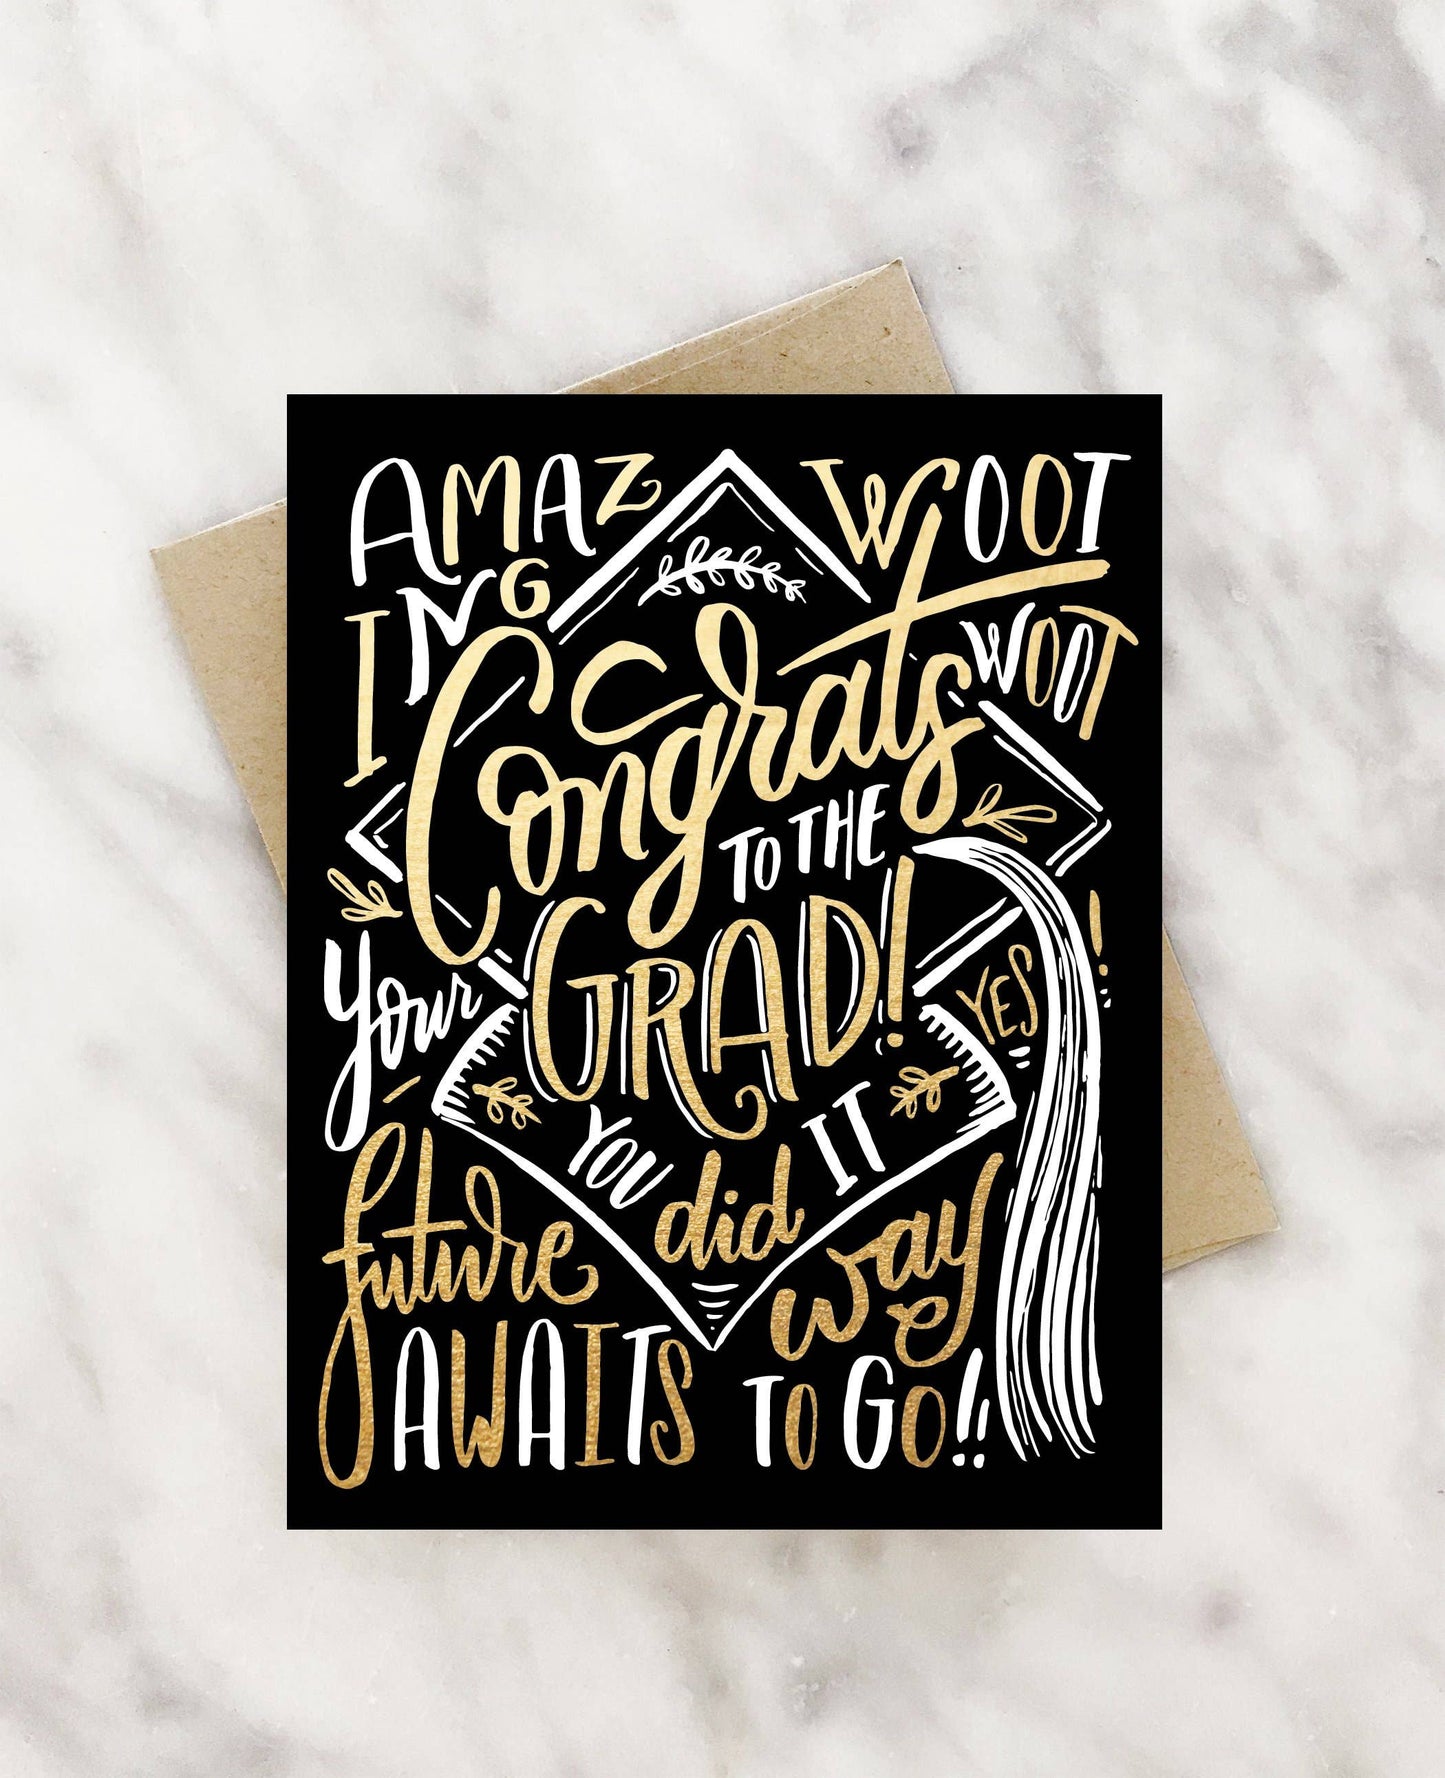 AMAZ
ING
WOOT
WOOT
Congrats
TO THE
GRAD!
YES!
Your
future
AWAITS
YOU
did
IT
way
TO GO!!